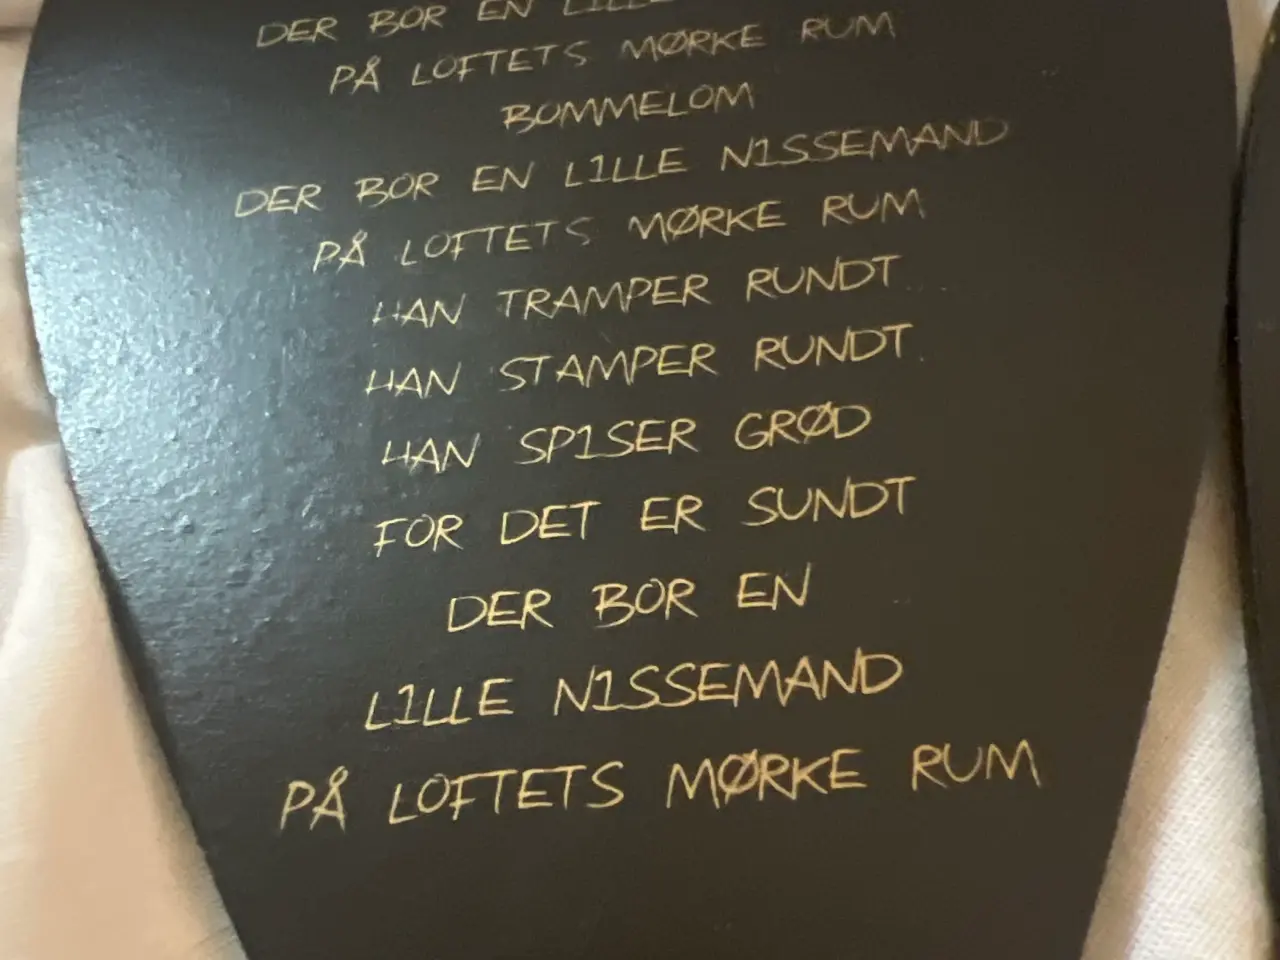 DER BOR EN LILLE
PÅ LOFTETS MØRKE RUM
BOMMELOM
DER BOR EN LILLE NISSEMAND
PÅ LOFTETS MØRKE RUM
HAN TRAMPER RUNDT
HAN STAMPER RUNDT
HAN SPISER GRØD
FOR DET ER SUNDT
DER BOR EN
LILLE NISSEMAND
PÅ LOFTETS MØRKE RUM